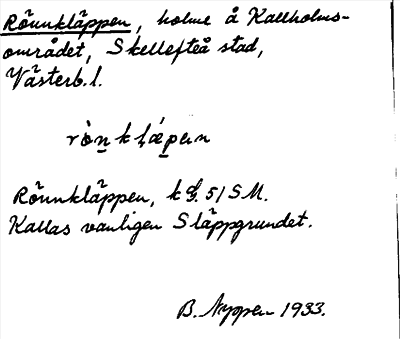 Rönnkläppen, holme å Kallholms-
området, Skellefteå stad,
Västerb. l.
rònkłǽpen
Rönnkläppen, k 51 SM.
Kallas vanligen Släppgrundet.
B. Nyppen 1933.